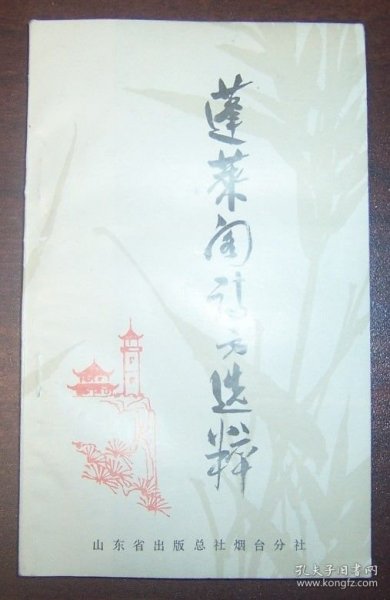 蓬莱阁诗文选粹
山东省出版总社烟台分社
孔夫子旧书网
www.kongfz.com